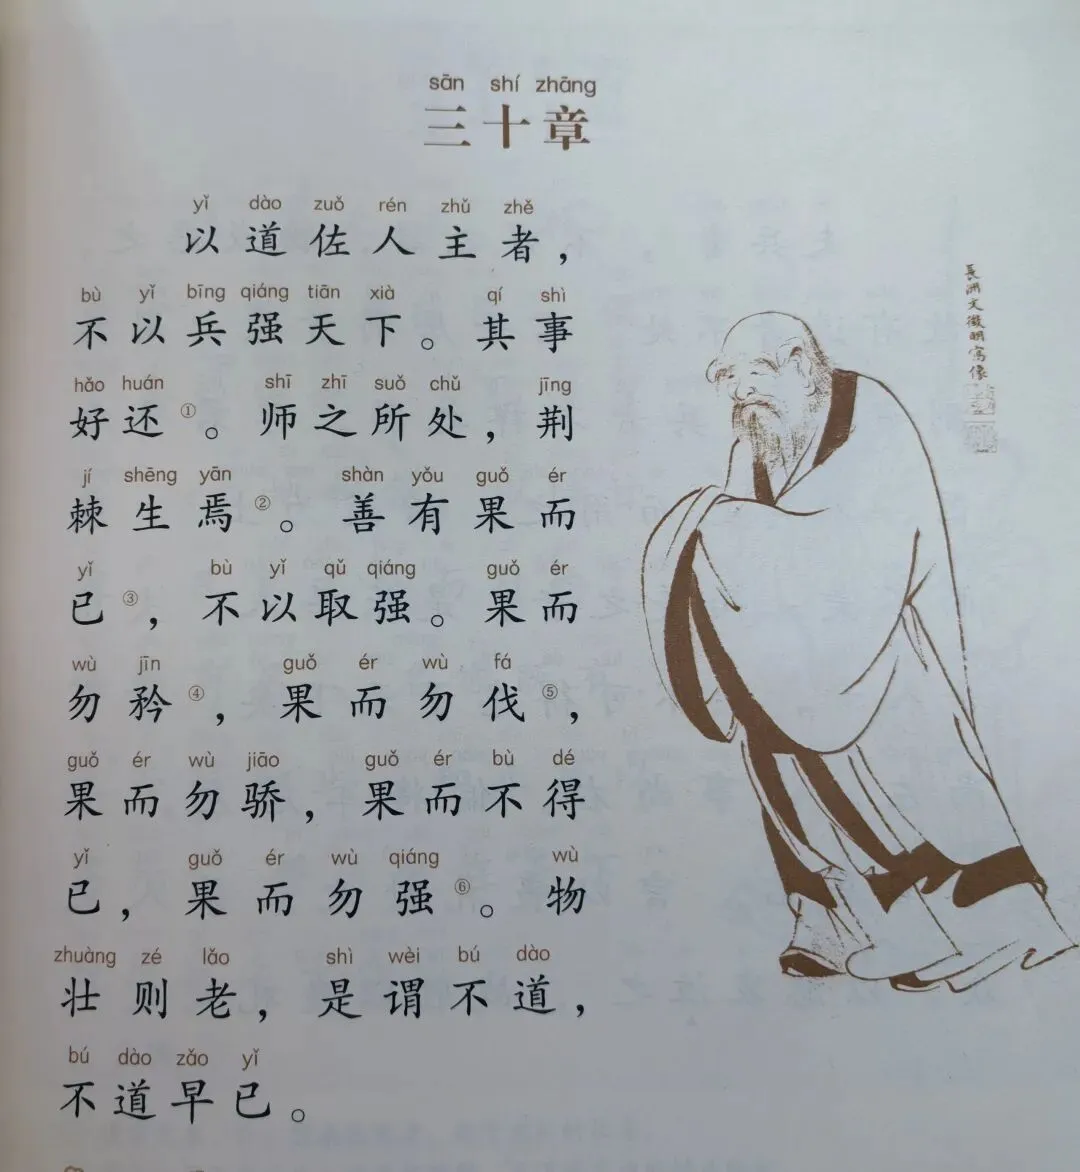 sān shí zhāng
三十章
yǐ dào zuǒ rén zhǔ zhě
以道佐人主者，
bù yǐ bīng qiáng tiān xià qí shì
不以兵强天下。其事
hǎo huán shī zhī suǒ chǔ jīng
好还①。师之所处，荆
jí shēng yān shàn yǒu guǒ ér
棘生焉②。善有果而
yǐ bù yǐ qǔ qiáng guǒ ér
已③，不以取强。果而
wù jīn guǒ ér wù fá
勿矜④，果而勿伐⑤，
guǒ ér wù jiāo guǒ ér bù dé
果而勿骄，果而不得
yǐ guǒ ér wù qiáng wù
已，果而勿强⑥。物
zhuàng zé lǎo shì wèi bú dào
壮则老，是谓不道，
bú dào zǎo yǐ
不道早已。
長洲文徵明寫像